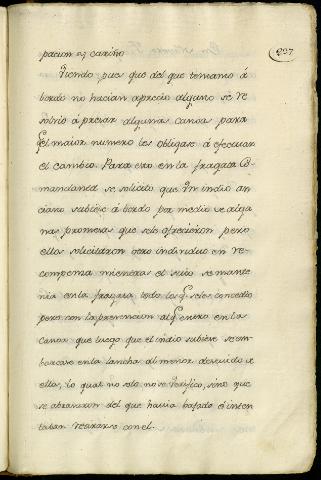 227
pacion ó cariño
Viendo pues que del que teniamos á
bordo no hacian aprecio alguno se re
solvio á presar alguna canoa para
q̃ el maior numero les obligase á efectuar
el cambio. Para eso en la fragata Co
mandanta se solicito que Un indio an
ciano subiese á bordo por medio de algu
nas promesas que sele ofrecieron pero
ellos solicitaron otro individuo en re
compensa mientras el suio se mante
nia enla fragata todo lo q̃ seles concedio
pero con la prevencion al q̃ entro en la
canoa que luego que el indio subiese se em
barcase en la lancha al menor descuido de
ellos, lo qual no solo no se Verifico, sino que
se abrazaron del que havia bajado é inten
taban retirarse con el.